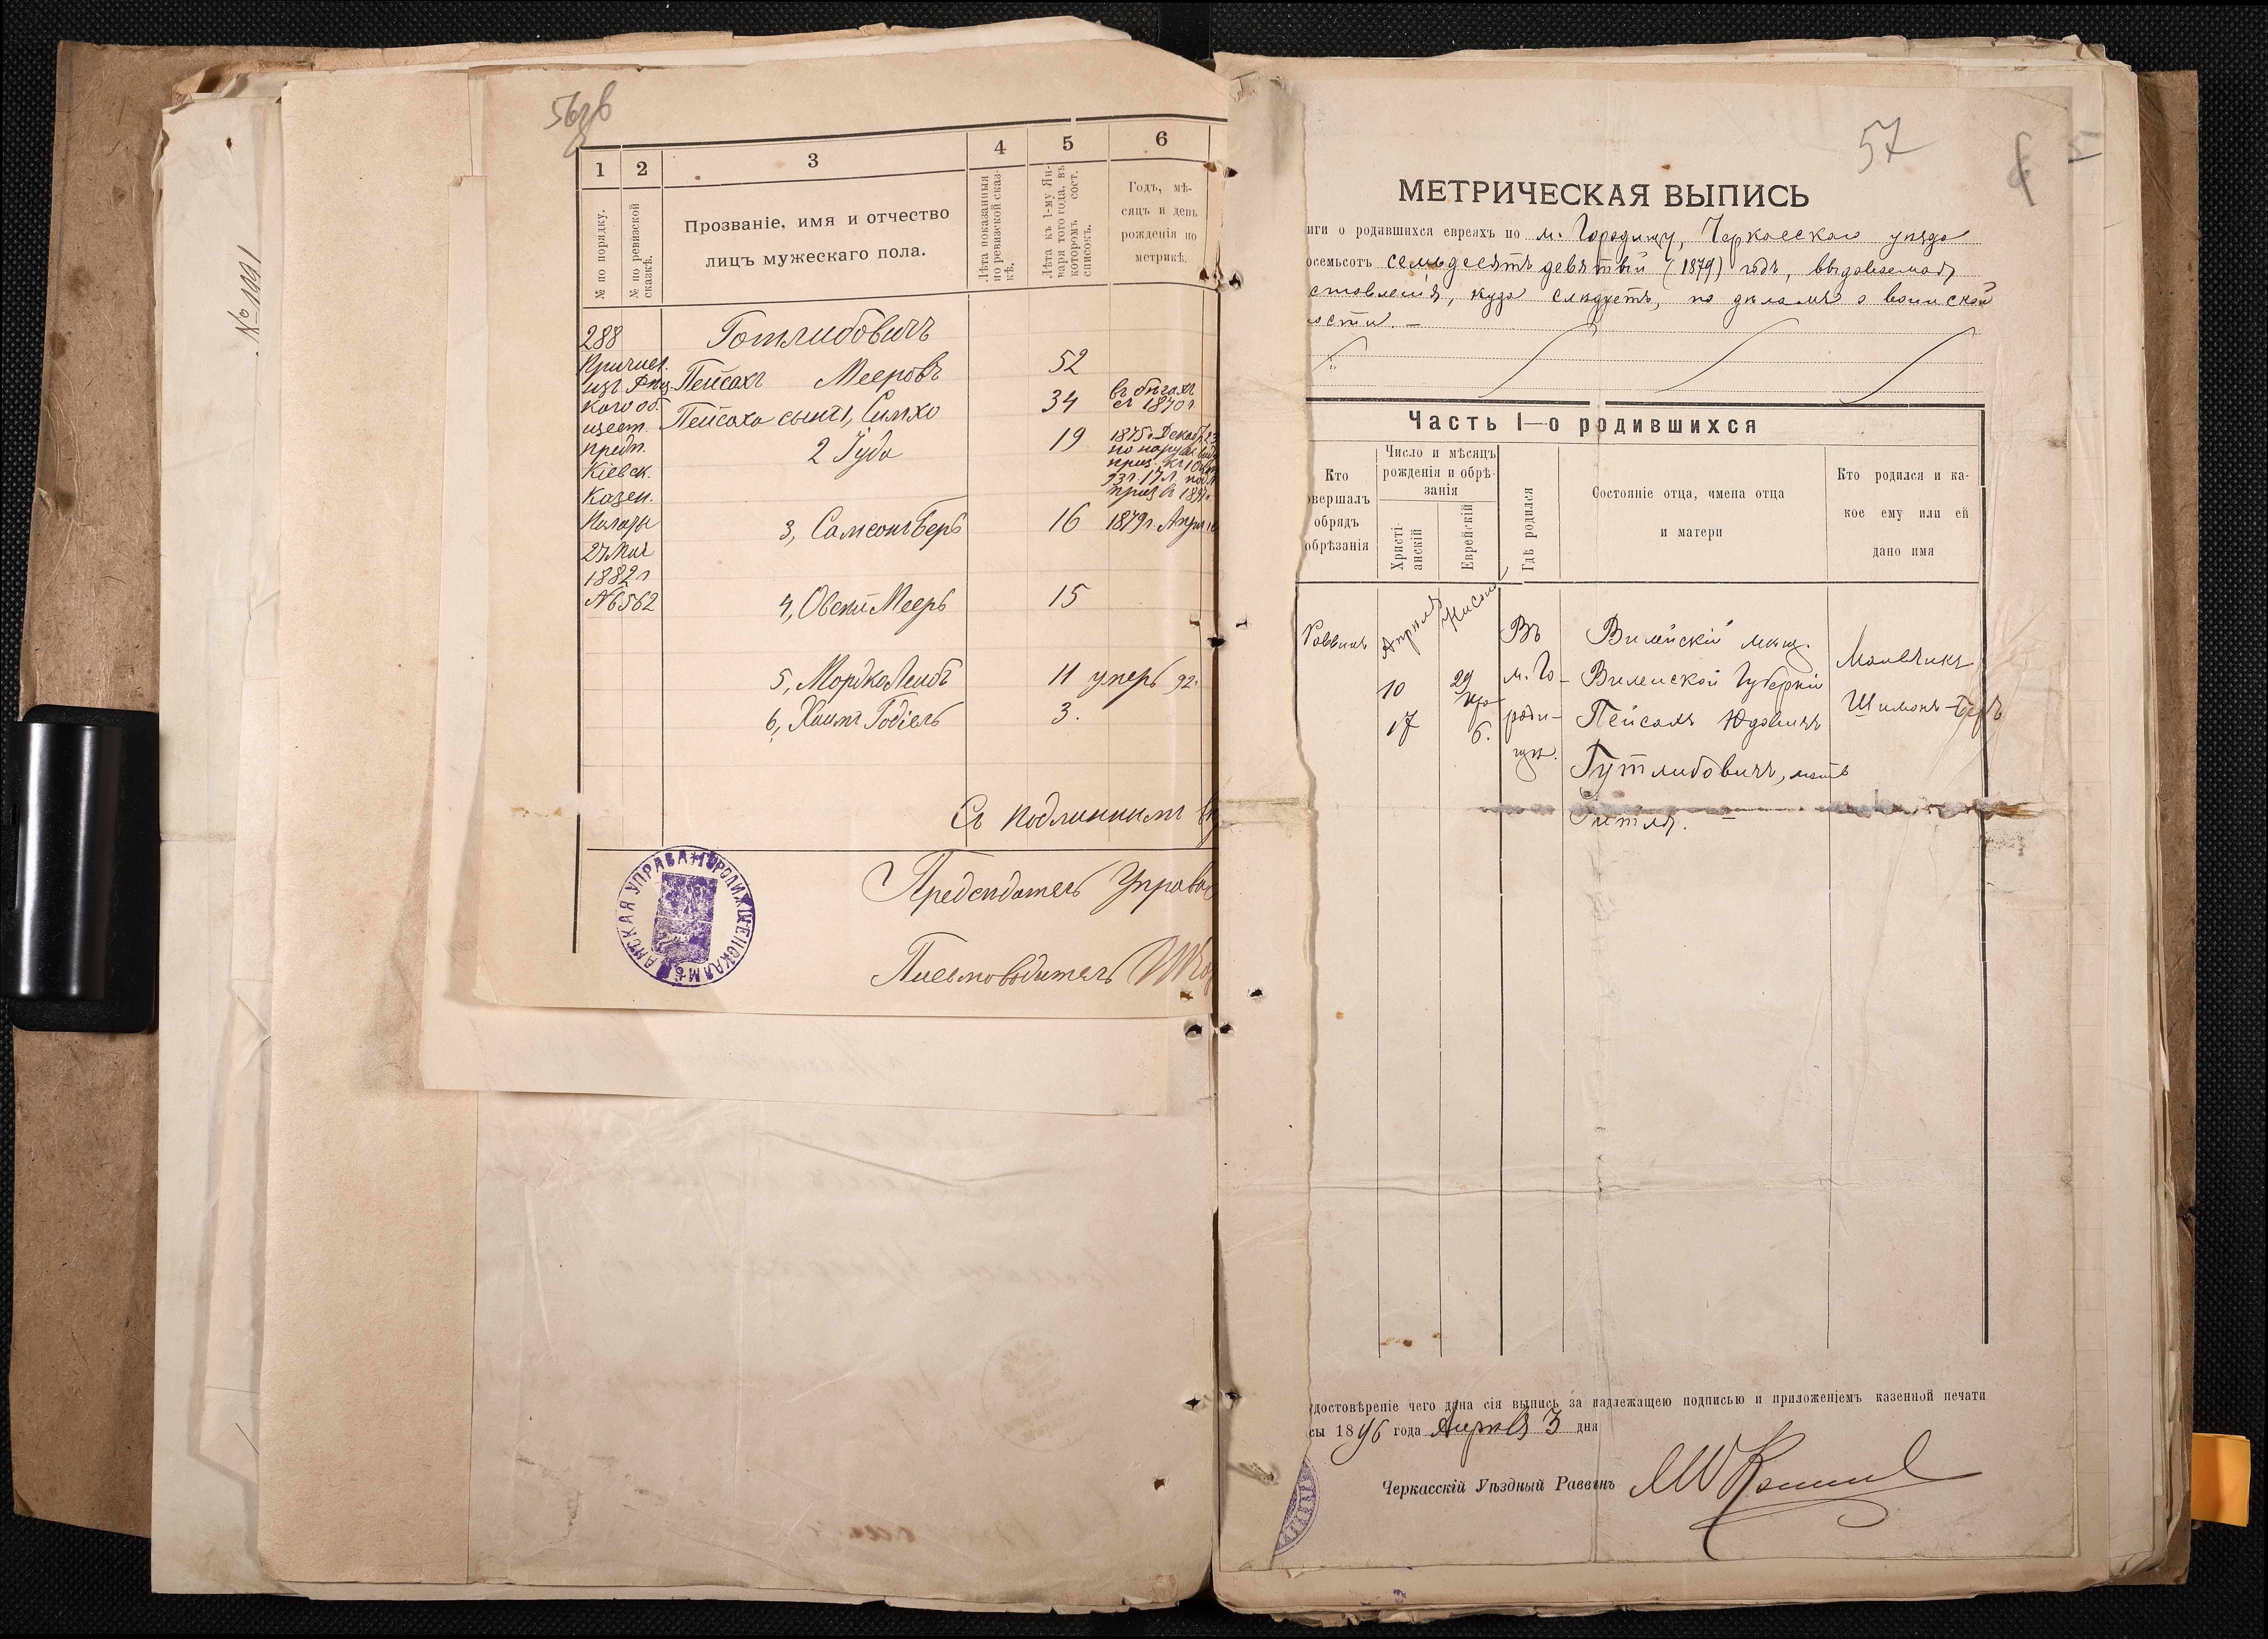 № 1991
56 об
1 2 3 4 5 6
№ по порядку.
№ по ревизской сказкѣ.
Прозваніе, имя и отчество
лицъ мужескаго пола.
Лѣта показанныя по ревизской сказкѣ.
Лѣта къ 1-му Января того года, въ которомъ сост. списокъ.
Годъ, мѣ-
сяцъ и день
рожденія по
метрикѣ.
288 Готлибовичъ
Причисл.
изъ
кого об.
предп.
Кіевск.
Казен.
Палаты
27 Мая
1882 г
№6562
Пейсахъ Мееровъ 52
Пейсаха сынъ 1, Симхо 34 въ бѣгахъ
съ 1870 г
2 Іуда 19 1875 г. Декаб. 23
по наруж. виду
3, Самсонъ Беръ 16 1879 г. Апр.
4, Овсей Мееръ 15
5, Мордко Лейбъ 11 умеръ 92.
6, Хаимъ Годіель 3.
Съ подлиннымъ
Предсѣдатель Управы
Письмоводитель
МѢЩАНСКАЯ УПРАВА ГОРОДИЩЕНСКАЯ
57
МЕТРИЧЕСКАЯ ВЫПИСЬ
иги о родившихся евреяхъ по м. Городищу, Черкасскаго уѣзда
осемьсотъ семьдесятъ девятый (1879) годъ, выдаваемая
ставленія, куда слѣдуетъ, по дѣламъ о воинской
ости. —
Часть I—о родившихся
Кто
овершалъ
обрядъ
обрѣзанія
Число и мѣсяцъ
рожденія и обрѣ-
занія
Христі-
анскій
Еврейскій
Гдѣ родился
Состояніе отца, имена отца
и матери
Кто родился и ка-
кое ему или ей
дано имя
Раввинъ
Апрѣля
10
17
Нисонъ
29
6.
Въ
м. Го-
роди-
щѣ.
Вилейскій мѣщ.
Виленской Губерніи
Пейсахъ Юдовичъ
Гутлибовичъ, мать
Гитля. —
Мальчикъ
Шимонъ-Беръ
достовѣреніе чего дана сія выпись за надлежащею подписью и приложеніемъ казенной печати
сы 1896 года Апрѣля 3 дня
Черкасскій Уѣздный Раввинъ